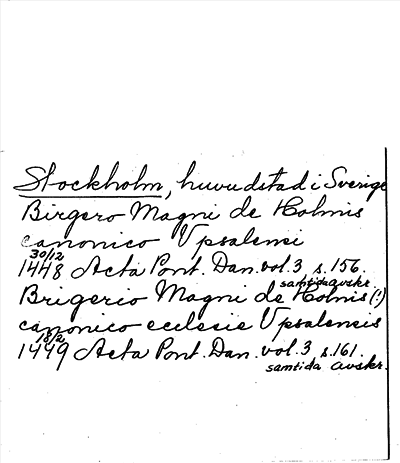 Stockholm, huvudstad i Sverige
Birgero Magni de Holmis
canonico Vpsalensi
30/12
1448 Acta Pont. Dan. vol. 3 s. 156.
samtida avskr.
Brigerio Magni de Holmis (!)
canonico ecclesie Vpsalensis
18/2
1449 Acta Pont. Dan. vol. 3 s. 161.
samtida avskr.